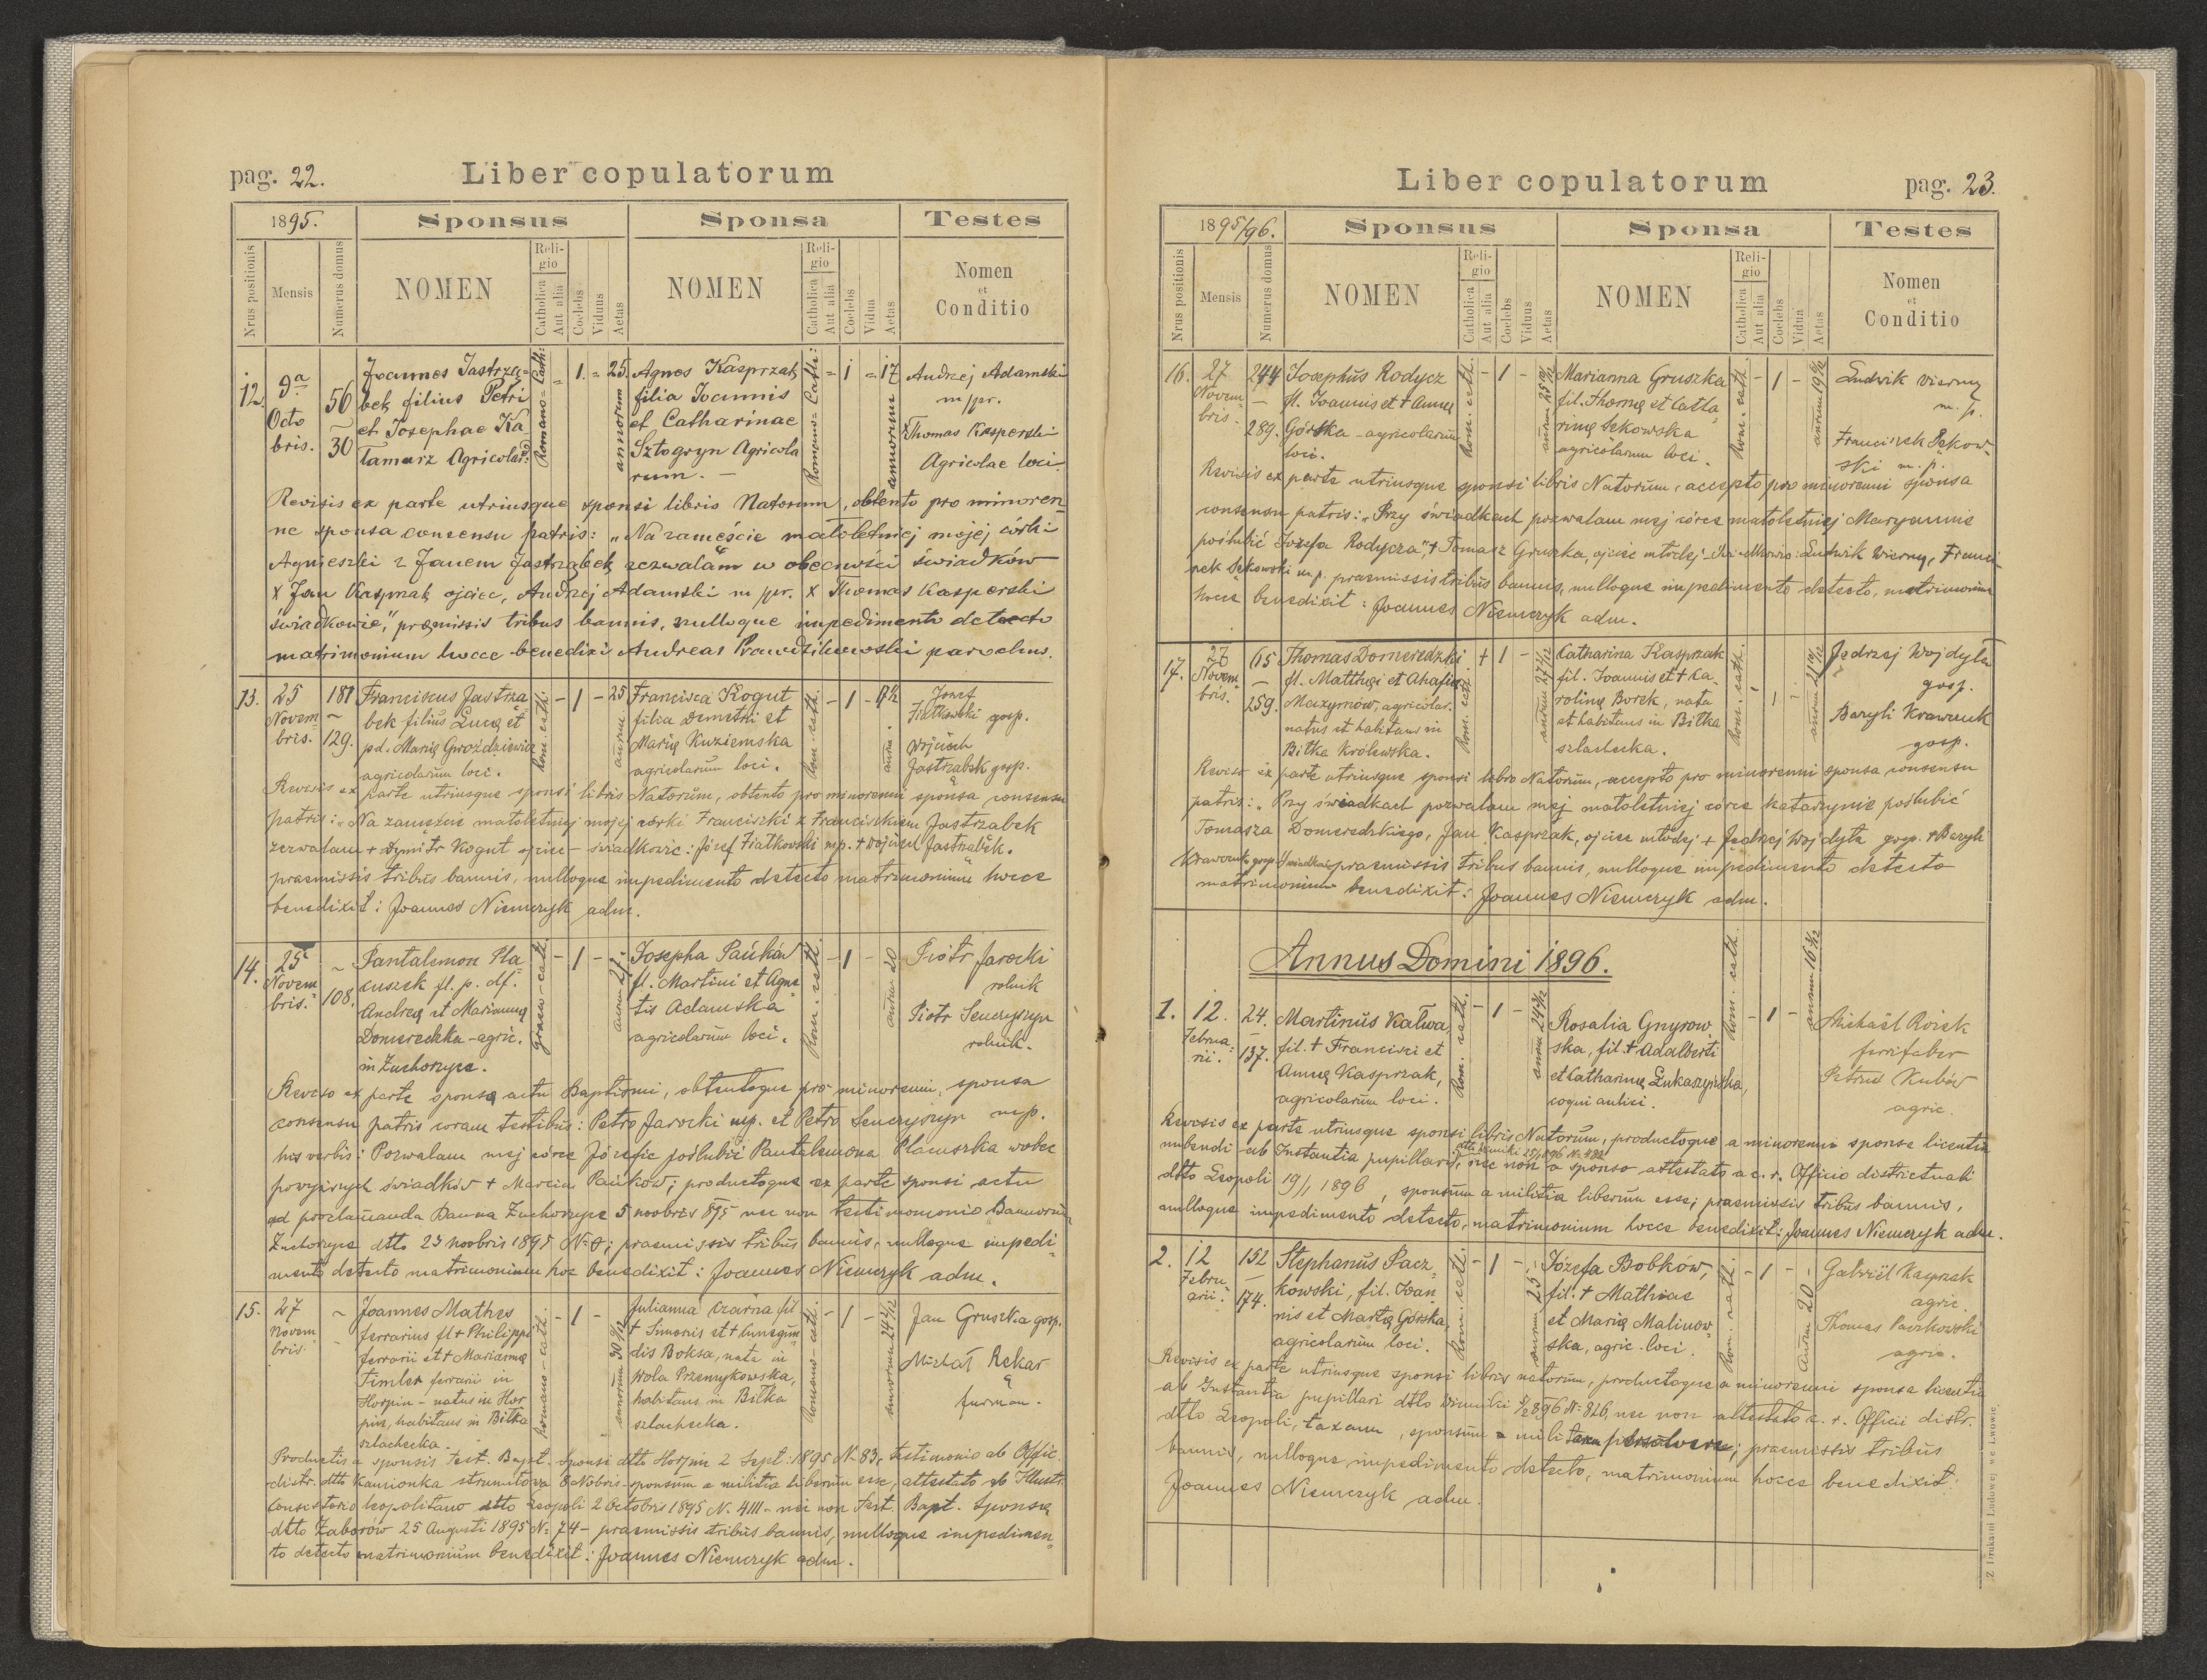 pag. 22.
Liber copulatorum
1895.
Sponsus
Sponsa
Testes
Nrus positionis
Mensis
Numerus domus
NOMEN
Religio
Catholica
Aut alia
Coelebs
Viduus
Aetas
NOMEN
Religio
Catholica
Aut alia
Coelebs
Vidua
Aetas
Nomen
et
Conditio
12.
9a
Octo
bris.
56
30
Joannes Jastrzą=
bek filius Petri
et Josephae Ka
tamarz Agricolar:
Romano=Cath:
1.
25.
annorum
Agnes Kasprzak
filia Joannis
et Catharinae
Sztogryn Agricola
rum. —
Romano=Cath:
1
17
annorum
Andrzej Adamski
m/pr.
Thomas Kasperski
Agricolae loci.
Revisis ex parte utriusque sponsi libris Natorum, obtento pro minoren
ne sponsa consensu patris: „Na zamęście małoletniej mojej córki
Agnieszki z Janem Jastrząbek zezwalam w obecności świadków
x Jan Kasprzak ojciec, Andrzej Adamski m/pr. x Thomas Kasperski
świadkowie", praemissis tribus bannis, nulloque impedimento detecto
matrimonium hocce benedixi Andreas parochus.
13.
25
Novem
bris.
181
129.
Franciscus Jastrzą
bek filius Lucę et
pd. Marię Gwoździewicz
agricolarum loci.
Rom. cath.
1
25
annor.
Francisca Kogut
filia Demetrii et
Marię Kuziemska
agricolarum loci.
Rom. cath.
1
17½
Józef
Fiałkowski gosp.
Wojciech
Jastrząbek gosp.
Revisis ex parte utriusque sponsi libris Natorum, obtento pro minorenni sponsa consensu
patris: „Na zamęźcie małoletniej mojej córki Franciszki z Franciszkiem Jastrząbek
zezwalam + Dymitr Kogut ojciec – świadkowie: Józef Fiałkowski mp. + Wojciech Jastrząbek.
praemissis tribus bannis, nulloque impedimento detecto matrimonium hocce
benedixit: Joannes Niemczyk adm.
14.
25
Novem
bris.
108.
Pantalemon Pla
cuszek fl. p. df.
Andreę et Marianne
Domereckka – agric.
in Zuchorzyce.
graeco-cath.
1
Josepha Pańków
fl. Martini et Agne
tis Adamska
agricolarum loci.
Rom. cath.
1
annor 20
Piotr Jarocki
rolnik
Piotr Senczyszyn
rolnik.
Reviso ex parte sponsę actu Baptismi, obtentoque pro minorenni sponsa
consensu patris coram testibus: Petro Jarocki mp. et Petro Senczyszyn mp.
his verbis: Pozwalam mej córce Józefie poślubić Pantalemona Placuszka wobec
powyższych świadków + Marcin Pańków; productoque ex parte sponsi actu
ad proclamanda Banna Zuchorzyce 5 novbris 895 nec non testimonio Bannorum
Zuchorzyce dtto 23 novbris 1895 praemissis tribus bannis, nulloque impedi
mento detecto matrimonium hoc benedixit: Joannes Niemczyk adm.
15.
27
Novem
bris
Joannes Mathes
ferrarius fl + Philippi
ferrarii et + Marianne
Timler ferrarii in
Horpin – natus in Hor
pin, habitans in Biłka
szlachecka.
Romano-cath.
1
Julianna Czarna fil
+ Simonis et + Cunegun
dis Boksa, nata in
Wola Przemykowska,
habitans in Biłka
szlachecka.
Romano-cath.
1
Jan Gruszka gosp.
Michał Rękar
furman.
Productis a sponsis Test. Bapt. Sponsi dtto Horpin 2 Sept. 1895 N. 83, testimonio ab Offic.
distr. dtto Kamionka strumiłowa 8 Nobris – sponsum a militia liberum esse, attestato ab Illustr.
Consistorio leopolitano dtto Leopoli 2 Octobris 1895 N. 4111 – nec non Test. Bapt. Sponsę
dtto Zaborów 25 Augusti 1895 N. 74 – praemissis tribus bannis, nulloque impedimen
to detecto matrimonium benedixit: Joannes Niemczyk adm.
Liber copulatorum
pag. 23.
1895/96.
Sponsus
Sponsa
Testes
Nrus positionis
Mensis
Numerus domus
NOMEN
Religio
Catholica
Aut alia
Coelebs
Viduus
Aetas
NOMEN
Religio
Catholica
Aut alia
Coelebs
Vidua
Aetas
Nomen
et
Conditio
16.
27
Novem
bris.
244
289.
Josephus Rodycz
fl. Joannis et + Annę
Górska – agricolarum
loci.
Rom. cath.
1
Marianna Gruszka
fil. Thomę et Catha
rinę Sękowska
agricolarum loci.
Rom. cath.
1
Ludwik Wierny
m. p.
Franciszek Sękow
ski m. p.
Revisis ex parte utriusque sponsi libris Natorum, accepto pro minorenni sponsa
consensu patris: „Przy świadkach pozwalam mej córce małoletniej Maryannie
poślubić Józefa Rodycza", + Tomasz Gruszka, ojciec młodej. Ludwik Wierny, Franci
szek Sękowski m. p. praemissis tribus bannis, nulloque impedimento detecto, matrimonium
hocce benedixit: Joannes Niemczyk adm.
17.
27
Novem
bris.
65
259.
Thomas Domeredzki
fl. Matthęi et Ahafię
Maxymów, agricolar.
natus et habitans in
Biłka Królewska.
+
1
Catharina Kasprzak
fil. Joannis et + Ca
rolinę Borek, nata
et habitans in Biłka
szlachecka.
Rom. cath.
1
Jędrzej Wojdyła
gosp.
Bazyli Krawczuk
gosp.
Reviso ex parte utriusque sponsi libro Natorum, accepto pro minorenni sponsa consensu
patris: „Przy świadkach pozwalam mej małoletniej córce Katarzynie poślubić
Tomasza Domeredzkiego, Jan Kasprzak, ojciec młodej + Jędrzej Wojdyła gosp. + Bazyli
Krawczuk gosp. świadkowie praemissis tribus bannis, nulloque impedimento detecto
matrimonium benedixit: Joannes Niemczyk adm.
Annus Domini 1896.
1.
12.
Februa
rii.
24.
137.
Martinus Kałwa
fil. + Francisci et
Annę Kasprzak,
agricolarum loci.
Rom. cath.
1
Rosalia Gnyrow
ska, fil. + Adalberti
et Catharinę Łukaszyńska,
coqui aulici.
Rom. cath.
1
Michaël Rojek
ferrifaber
Petrus Kubów
agric.
Revisis ex parte utriusque sponsi libris Natorum, productoque a minorenni sponsa licentia
nubendi ab Instantia pupillari, nec non a sponso attestato a c. r. Officio districtuali
dtto Leopoli 19/1 1896, sponsum a militia liberum esse; praemissis tribus bannis,
nulloque impedimento detecto, matrimonium hocce benedixit: Joannes Niemczyk adm.
2.
12
Febru
arii.
152
174.
Stephanus Pacz
kowski, fil. Joan
nis et Martę Górska,
agricolarum loci.
Rom. cath.
1
annor. 25
Józefa Bobków,
fil. + Mathiae
et Marię Malinow
ska, agric. loci.
Rom. cath.
1
Annor. 20
Gabriël Kasprzak
agric.
Thomas Paczkowski
agric.
Revisis ex parte utriusque sponsi libris natorum, productoque a minorenni sponsa licentia
ab Instantia pupillari dtto Winniki 896 N. 826, nec non attestato c. r. Officii distr.
dtto Leopoli, taxam, sponsum a militari persolvere; praemissis tribus
bannis, nulloque impedimento detecto, matrimonium hocce benedixit.
Joannes Niemczyk adm.
Z Drukarni Ludowej we Lwowie